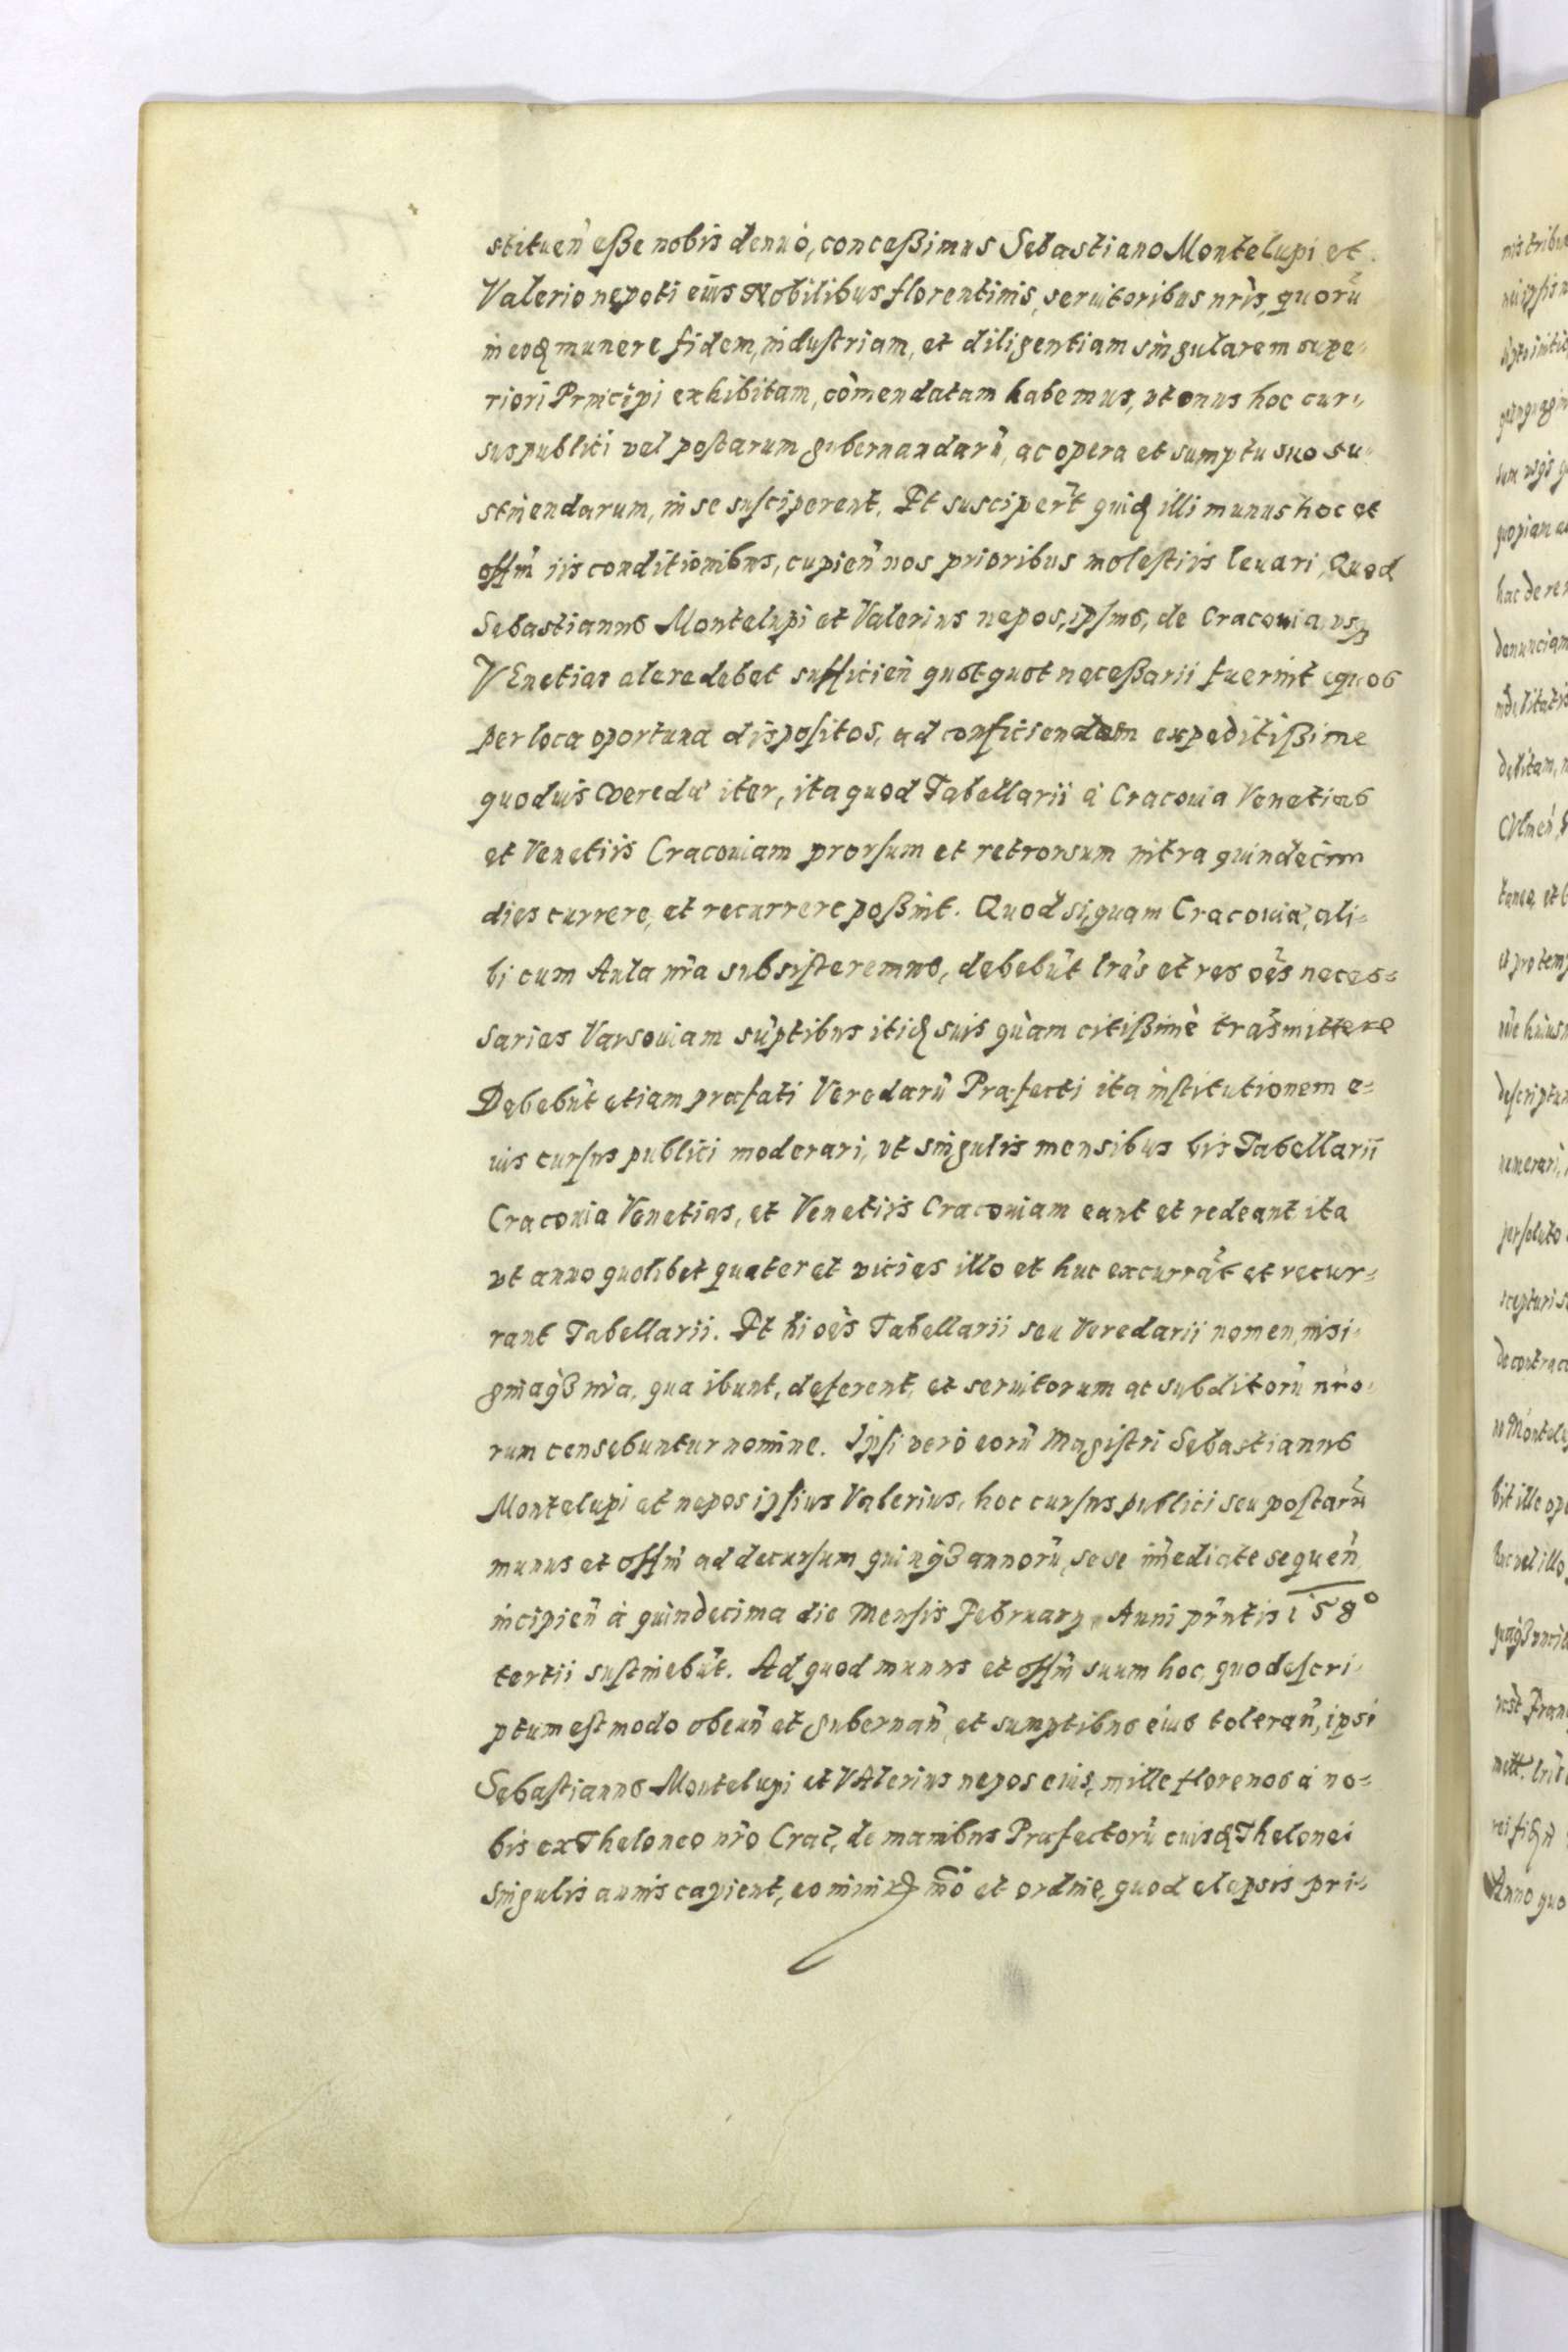 stituen̄ eſſe nobis denuò, conceßimus Sebastiano Montelupi et
Valerio nepoti eius Nobilibus florentinis, seruitoribus nr̄is, quorū
in eodȩ munere fidem, induſtriam, et diligentiam singularem supe-
riori Principi exhibitam, cōmendatam habemus, vt onus hoc cur-
sus publici vel poſtarum gubernandarū, ac opera et sumptu suo su-
stinendarum, in se suſciperent. Et susciperūt quidȩ illi munus hoc et
offm̄ iis conditionibus, cupien̄ nos prioribus moleſtiis leuari, Quod
Sebastianus Montelupi et Valerius nepos, ipſius, de Cracouia usq
VEnetias alere debet sufficien̄ quotquot neceßarii fuerint equos
per loca oportuna diſpoſitos, ad conficiendam expeditißime
quoduis veredū iter, ita quod Tabellarii à Cracouia Venetias
et Venetiis Cracouiam prorſum et retrorsum intra quindecim
dies currere, et recurrere poßint. Quod si, quam Cracouiā, ali-
bi cum Aula nr̄a subsiſteremus, debebūt lr̄as et res oēs neces-
sarias Varsouiam sūptibus itidȩ suis quàm citißimè trāsmittere
Debebūt etiam præfati Veredarū Præfecti ita inſtitutionem e-
ius curſus publici moderari, vt singulis mensibus bis Tabellarii
Cracouia Venetias, et Venetiis Cracouiam eant et redeant ita
vt anno quolibet quater et vicies illo et huc excurrāt et recur-
rant Tabellarii. Et hi oēs Tabellarii seu Veredarii nomen, insi-
gniaq3 nr̄a, qua ibunt, deferent, et seruitorum ac subditorū nr̄o-
rum censebuntur nomine. Ipſi verò eorū Magiſtri Sebastianus
Montelupi et nepos ipſius Valerius, hoc curſus publici seu poſtarū
munus et offm̄ ad decurſum quinq3 annorū, sese im̄ediate sequen̄
incipien̄ à quindecima die Menſis Februarÿ Anni prn̄tis 158°
tertii suſtinebūt. Ad quod munus et offm̄ suum hoc, quo deſcri-
ptum eſt modo obeun̄ et gubernan̄, et sumptibus eius toleran̄, ipsi
Sebaſtianus Montelupi et VAlerius nepos eius, mille florenos à no-
bis ex Theloneo nr̄o Crac̄, de manibus Præfectorū euisdȩ Thelonei
Singulis annis capient, eo nimirȩ mō et ordine, quod elapsis pri-